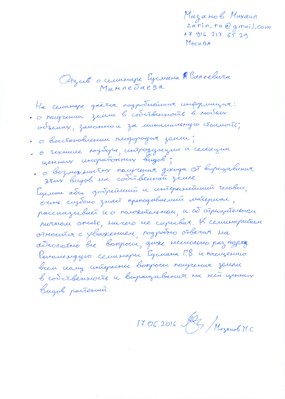 Мазанов Михаил
zarin.ra@gmail.com
+7 916 217 65 29
Москва
Отзыв о семинаре Гусмана Салеевича
Минлебаева
На семинаре даётся подробнейшая информация:
о получении земли в собственность в любых
объемах, законно и за минимальную стоимость;
о восстановлении плодородия земли;
о технике подбора, интродукции и селекции
ценных видов;
о возможностях получения дохода от выращивания
этих видов на собственной земле
Гусман добрейший и интереснейший человек,
очень глубоко знает преподаваемый материал,
рассказывает и о положительном, и об отрицательном
личном опыте, ничего не скрывая. К семинаристам
относится с уважением, подробно отвечая на
абсолютно все вопросы, даже несколько раз подряд.
Рекомендую семинары Гусмана к посещению
всем кому интересны вопросы получения земли
в собственность и выращивания на ней ценных
видов растений.
17.06.2016 Мазанов М.С.